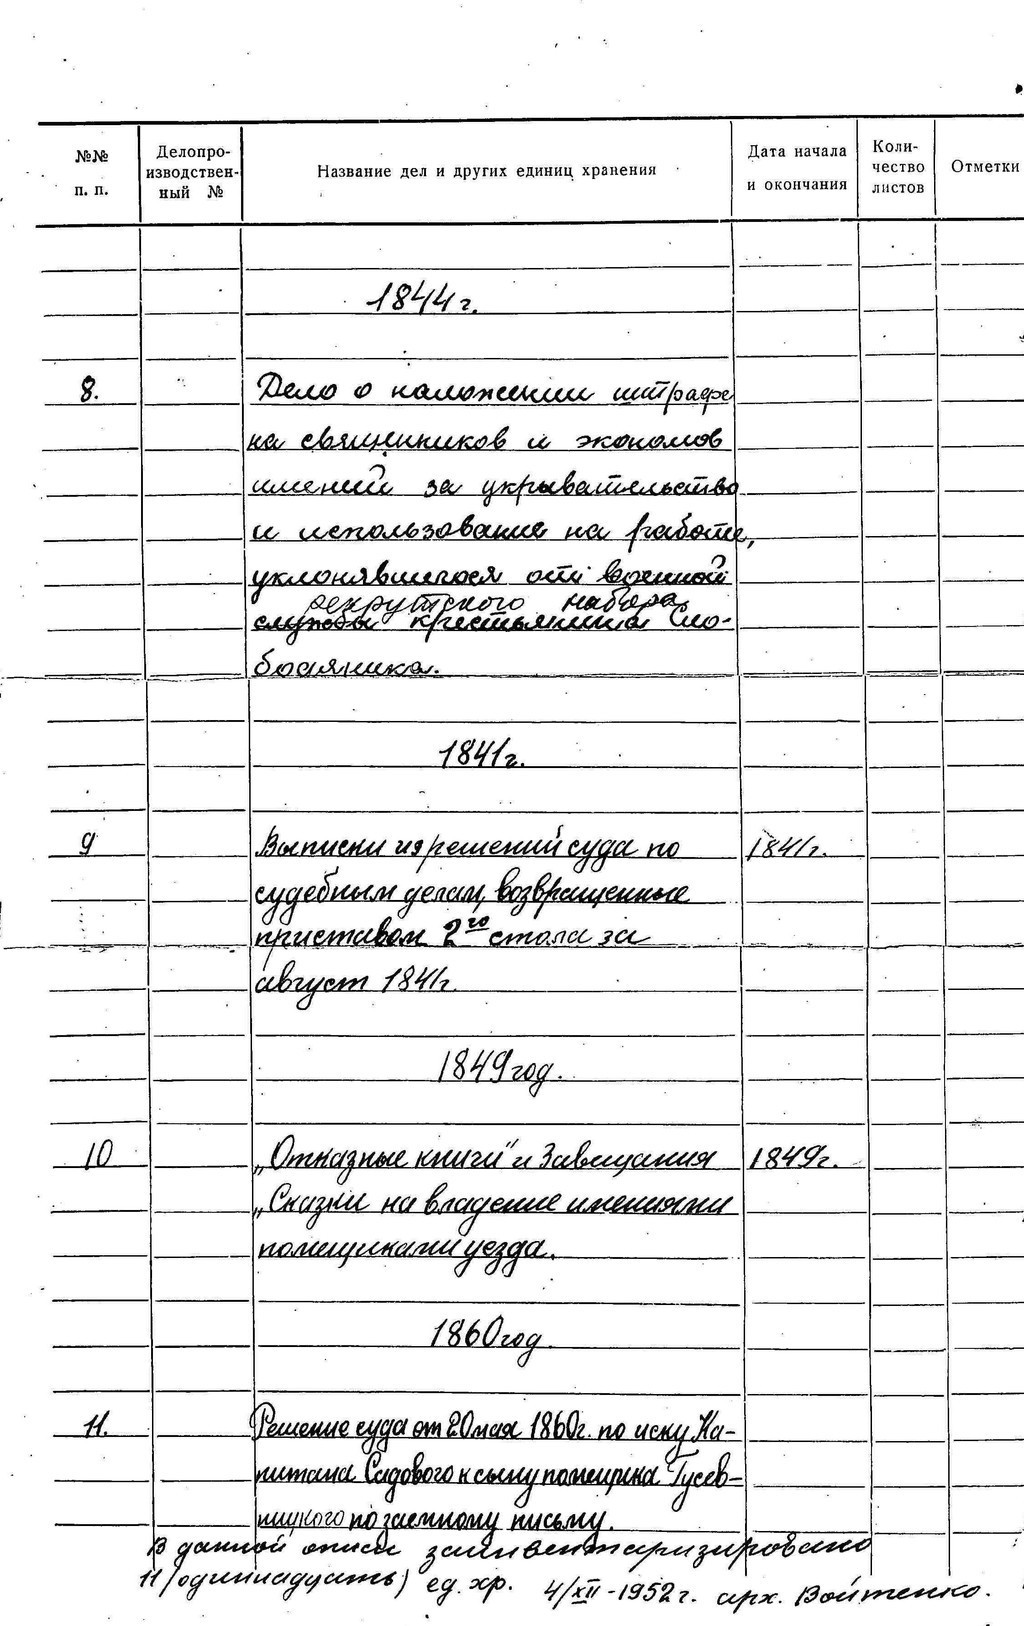 №№ п. п.
Делопро-
изводствен-
ный №
Название дел и других единиц хранения
Дата начала
и окончания
Коли-
чество
листов
Отметки
1844 г.
8.
Дело о наложении штрафа
на священников и экономов
имений за укрывательство
и использование на работе,
уклонявшегося от военной
рекрутского набора
службы крестьянина Сло-
бодяника.
1841 г.
9
Выписки из решений суда по
1841 г.
судебным делам, возвращенные
приставом 2го стола за
август 1841 г.
1849 год.
10
„Отказные книги" и Завещания
1849 г.
„Сказки на владение имениями
помещиками уезда.
1860 год.
11.
Решение суда от 20 мая 1860 г. по иску Ка-
питана Садового к сыну помещика
по заемному письму.
В данной описи заинвентаризировано
11 (одиннадцать) ед. хр. 4/XII - 1952 г. арх. Войтенко.